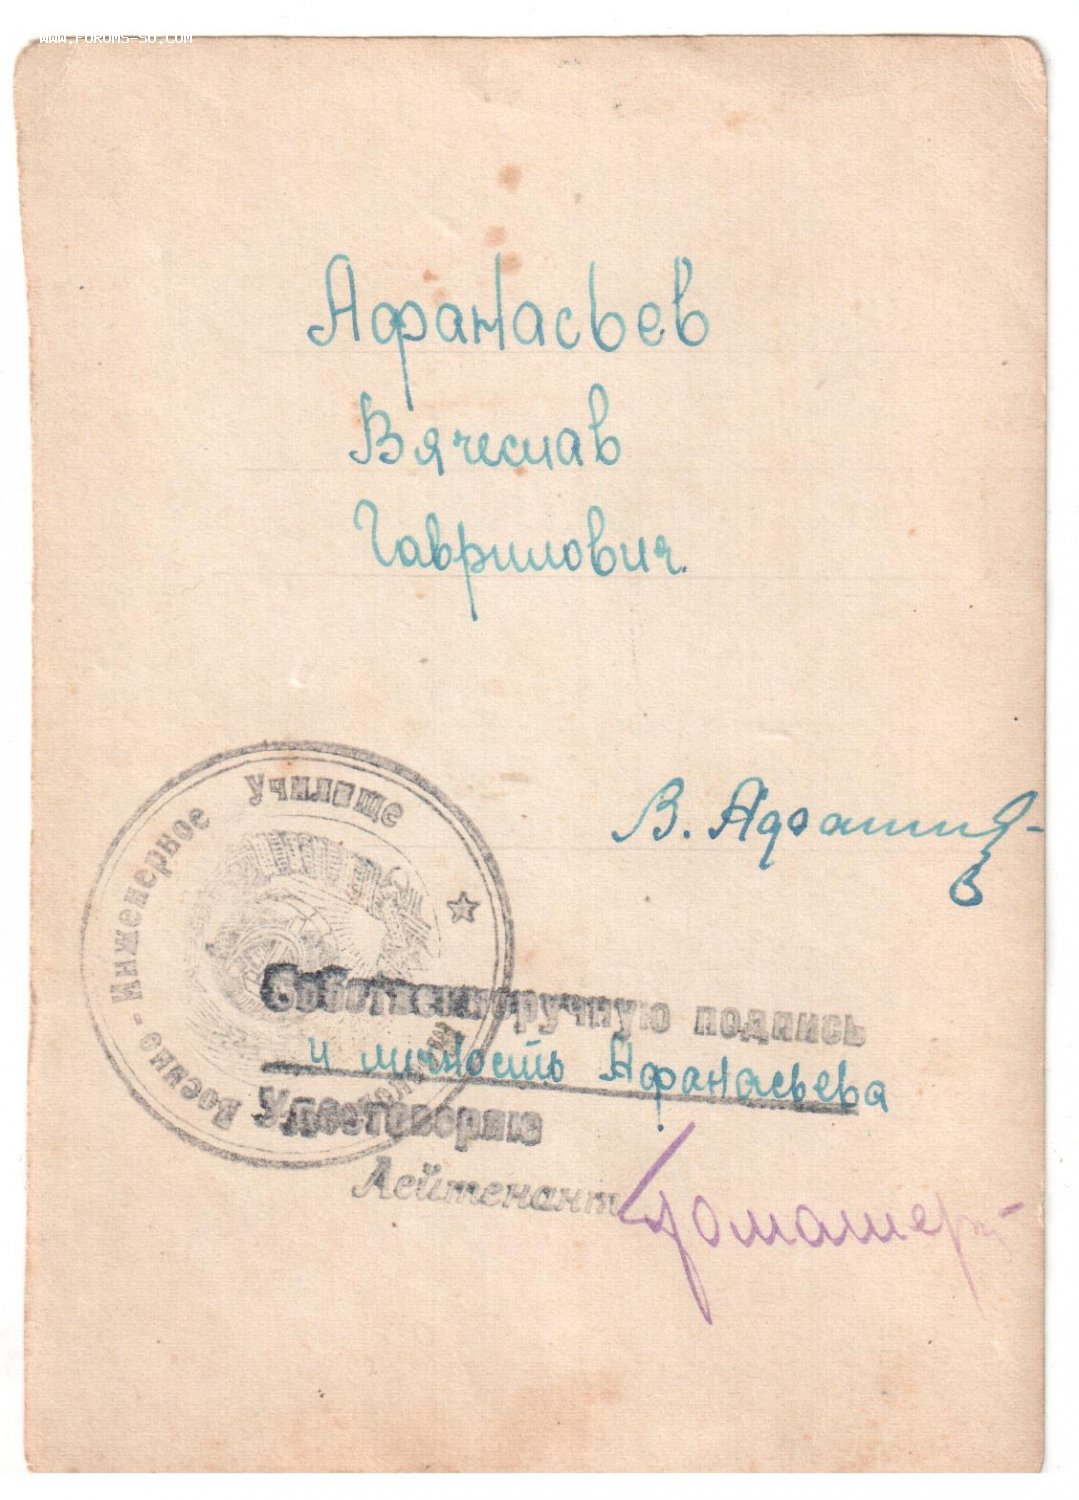 WWW.FORUMS-SU.COM
Афанасьев
Вячеслав
Гаврилович.
В. Афанасьев
Военно-Инженерное Училище
Собственноручную подпись
и личность Афанасьева
Удостоверяю
Лейтенант